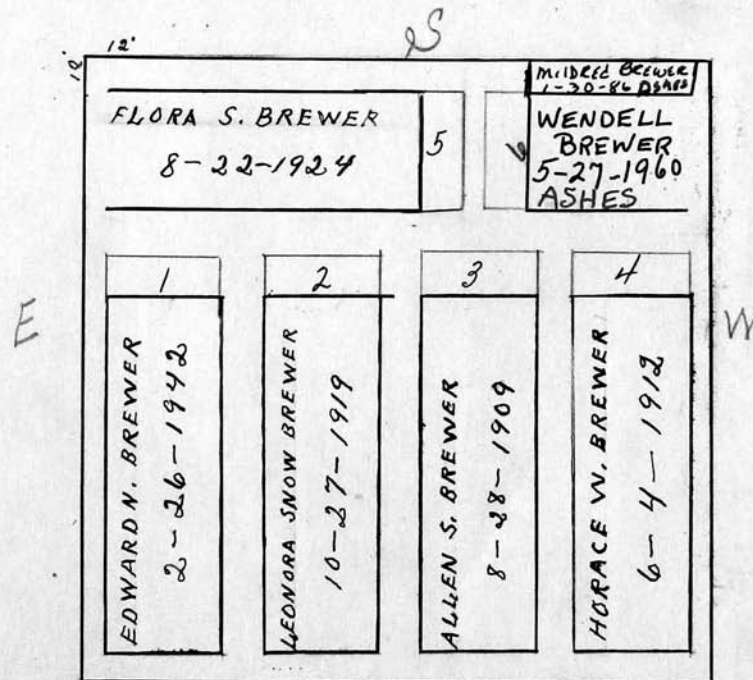 S
12'
12'
MILDRED BREWER
1-30-86 ASHES
FLORA S. BREWER
8-22-1924
5
6
WENDELL
BREWER
5-27-1960
ASHES
E
W
1
EDWARD N. BREWER
2-26-1942
2
LEONORA SNOW BREWER
10-27-1919
3
ALLEN S. BREWER
8-28-1909
4
HORACE W. BREWER
6-4-1912